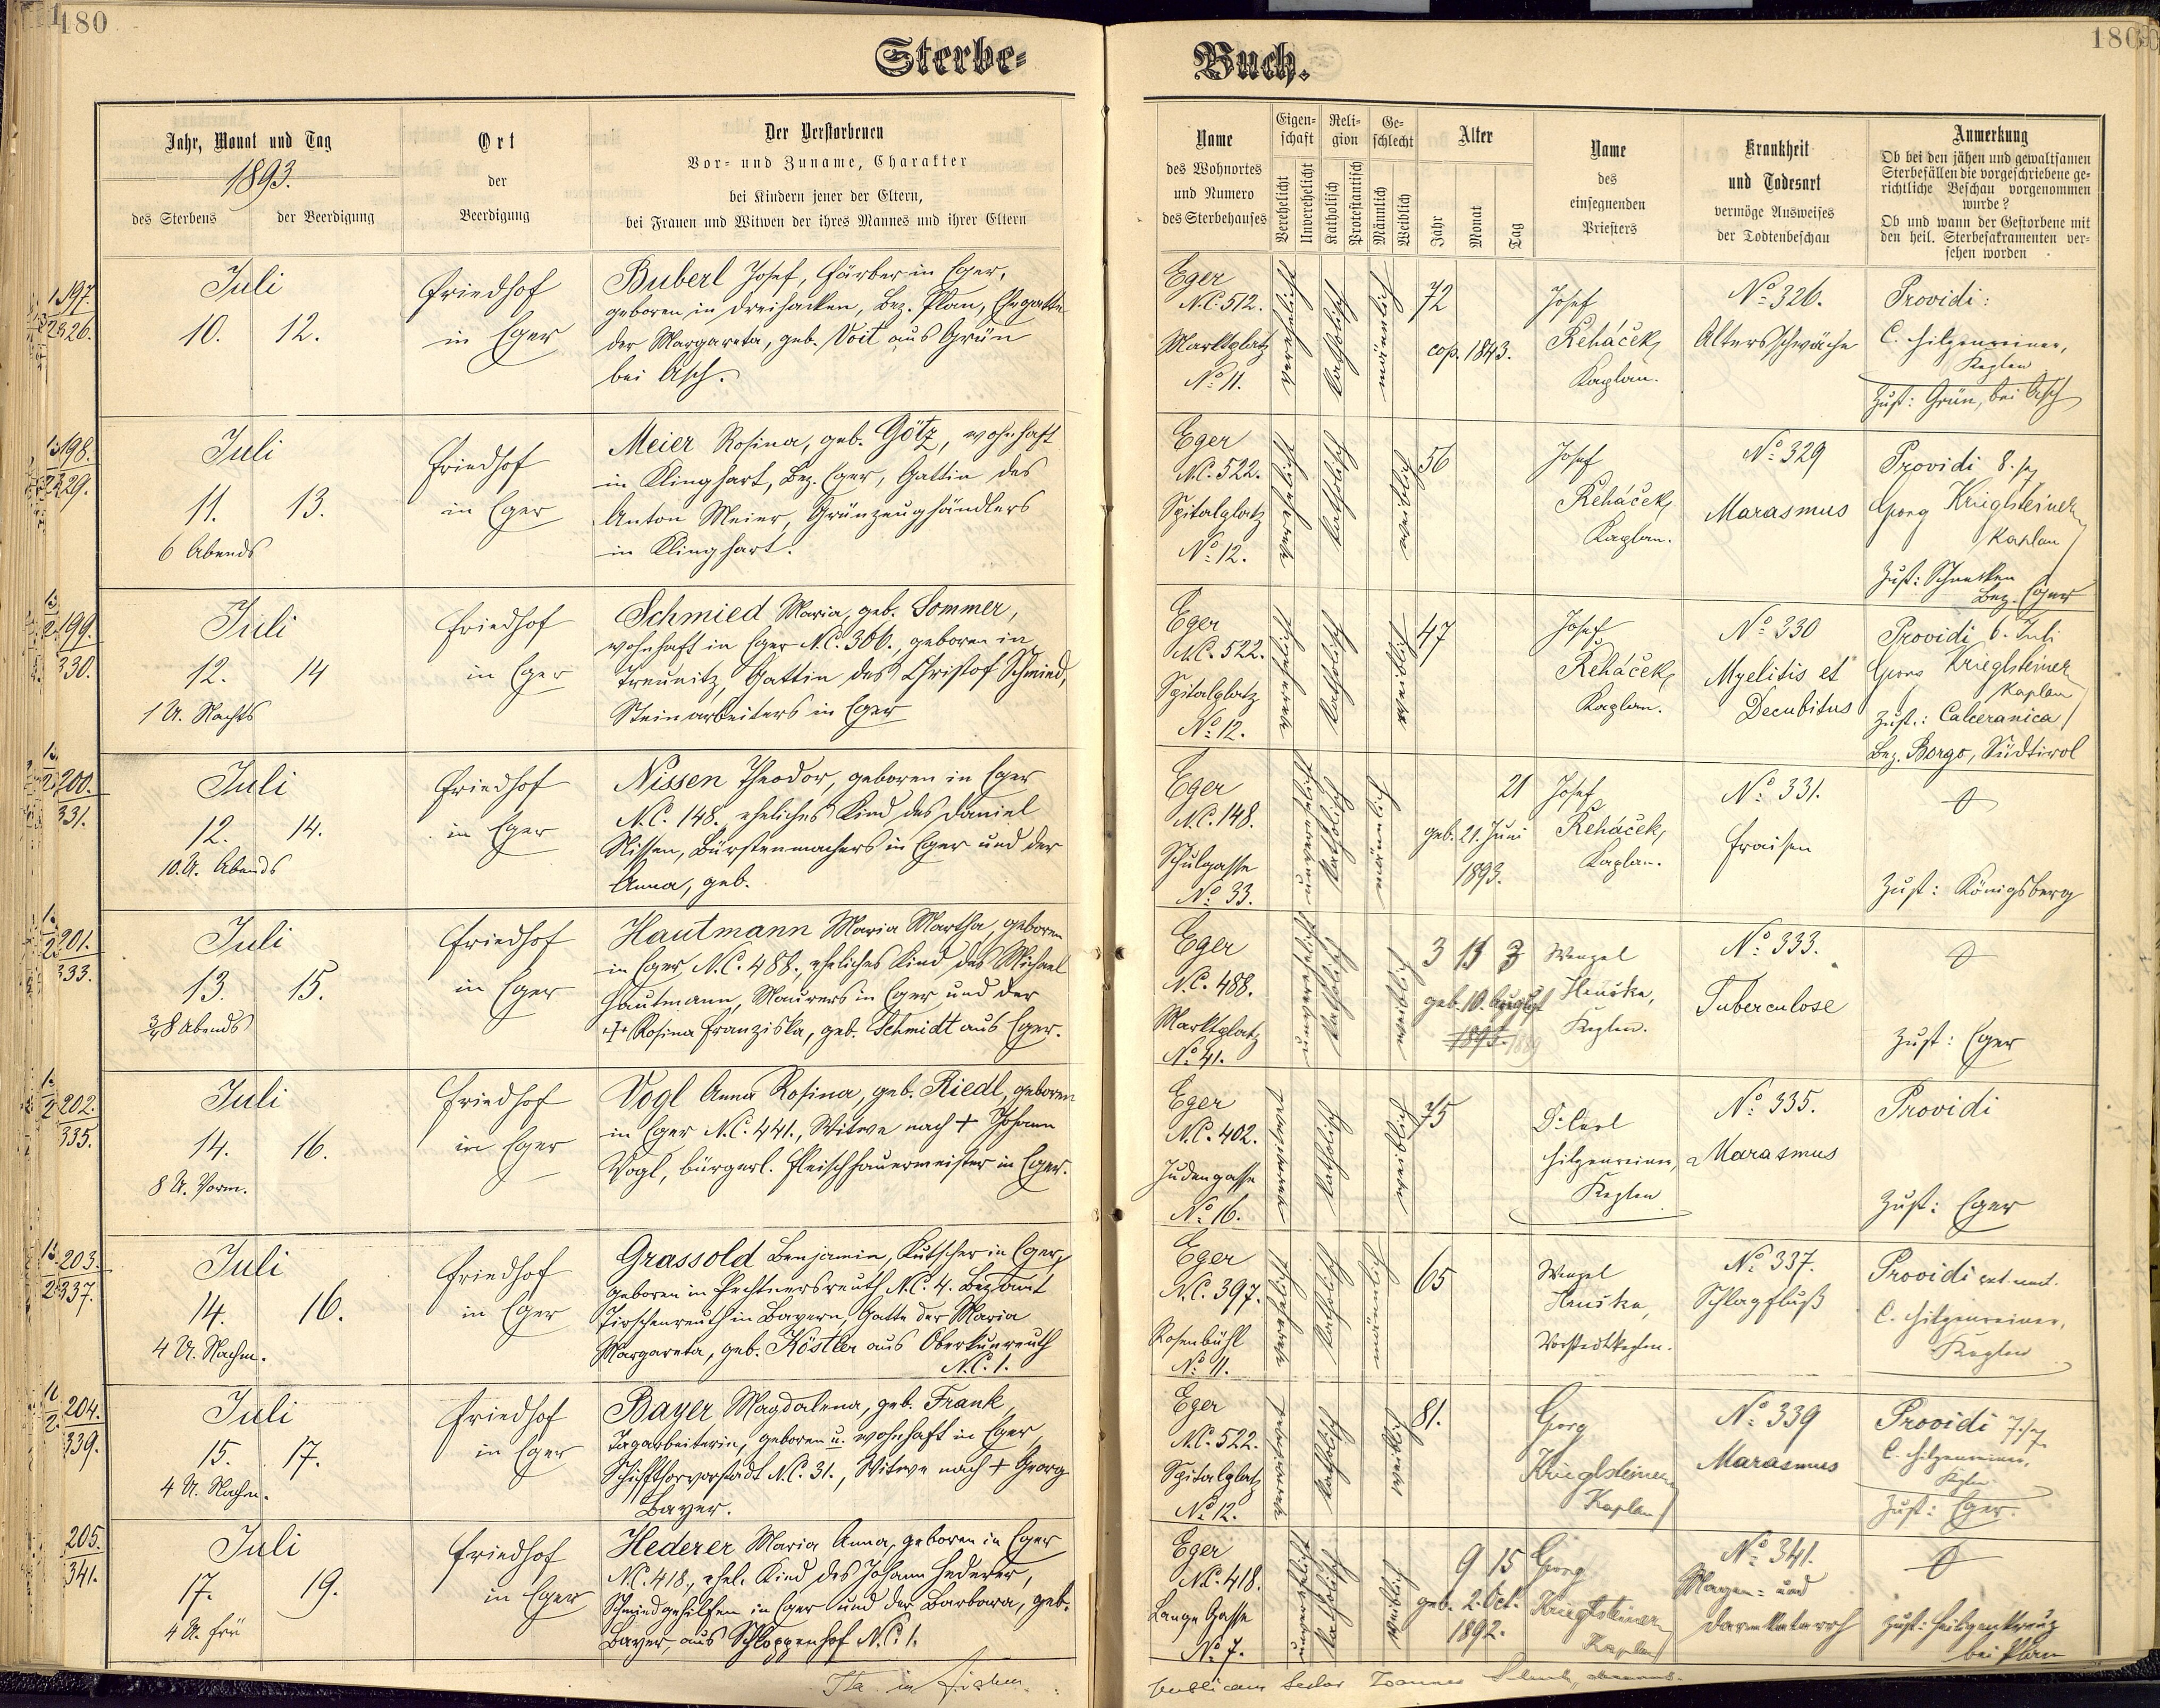 180
Sterbe-
Jahr, Monat und Tag
1893.
des Sterbens
der Beerdigung
Ort
der
Beerdigung
Der Verstorbenen
Vor- und Zuname, Charakter
bei Kindern jener der Eltern,
bei Frauen und Witwen der ihres Mannes und ihrer Eltern
197.
326.
Juli
10. 12.
Friedhof
in Eger
Buberl Josef, Färber in Eger,
geboren in Dreihacken, Bez. Plan, Ehegatte
der Margareta, geb. Voit aus Grün
bei Asch.
198.
329.
Juli
11. 13.
6 Abends
Friedhof
in Eger
Meier Rosina, geb. Götz, wohnhaft
in Klinghart, Bez. Eger, Gattin des
Anton Meier, Grünzeughändlers
in Klinghart.
199.
330.
Juli
12. 14
1 U. Nachts
Friedhof
in Eger
Schmied Maria, geb. Sommer,
wohnhaft in Eger N.C. 306., geboren in
Treunitz, Gattin des Christof Schmied,
Steinarbeiters in Eger
200.
331.
Juli
12. 14.
10. U. Abends
Friedhof
in Eger
Nissen Theodor, geboren in Eger
N.C. 148., eheliches Kind des Daniel
Nissen, Bürstenmachers in Eger und der
Anna, geb.
201.
333.
Juli
13. 15.
3/4 8 Abends
Friedhof
in Eger
Hautmann Maria Martha, geboren
in Eger N.C. 488., eheliches Kind des Michael
Hautmann, Maurers in Eger und der
+ Rosina Franziska, geb. Schmidt aus Eger.
202.
335.
Juli
14. 16.
8 U. Vorm.
Friedhof
in Eger
Vogl Anna Rosina, geb. Riedl, geboren
in Eger N.C. 441., Witwe nach + Johann
Vogl, bürgerl. Fleischhauermeister in Eger.
203.
337.
Juli
14. 16.
4 U. Nachm.
Friedhof
in Eger
Grassold Benjamin, Kutscher in Eger,
geboren in Pechtnersreuth N.C. 4. Bezamt
Tirschenreuth in Bayern, Gatte der Maria
Margareta, geb. Köstler aus Oberkunreuth
N.C. 1.
204.
339.
Juli
15. 17.
4 U. Nachm.
Friedhof
in Eger
Bayer Magdalena, geb. Frank,
Tagarbeiterin, geboren u. wohnhaft in Eger,
Schifthorvorstadt N.C. 31., Witwe nach + Georg
Bayer.
205.
341.
Juli
17. 19.
4 U. Frü
Friedhof
in Eger
Hederer Maria Anna, geboren in Eger
N.C. 418., ehel. Kind des Johann Hederer,
Schmiedgehilfen in Eger und der Barbara, geb.
Bayer, aus Schloppenhof N.C. 1.
Buch.
180
Name
des Wohnortes
und Numero
des Sterbehauses
Eigenschaft
Verehelicht
Unverehelicht
Religion
Katholisch
Protestantisch
Geschlecht
Männlich
Weiblich
Alter
Jahr
Monat
Tag
Name
des
einsegnenden
Priesters
Krankheit
und Todesart
vermöge Ausweises
der Todtenbeschau
Anmerkung
Ob bei den jähen und gewaltsamen
Sterbefällen die vorgeschriebene ge-
richtliche Beschau vorgenommen
wurde?
Ob und wann der Gestorbene mit
den heil. Sterbesakramenten ver-
sehen worden
Eger
N.C. 512.
Marktplatz
No. 11.
verehelicht
katholisch
männlich
72
cop. 1843.
Josef
Řeháček,
Kaplan.
No. 326.
Altersschwäche
Providi:
C. Hilgenreiner,
Kaplan
Zust: Grün, bei Asch
Eger
N.C. 522.
Spitalplatz
No. 12.
verehelicht
katholisch
weiblich
56
Josef
Řeháček,
Kaplan.
No. 329
Marasmus
Providi 8./7
Georg Krieglsteiner
Kaplan
Bez. Eger
Eger
N.C. 522.
Spitalplatz
No. 12.
verehelicht
katholisch
weiblich
47
Josef
Řeháček,
Kaplan.
No. 330
Myelitis et
Decubitus
Providi 6. Juli
Georg Krieglsteiner
Kaplan
Zust.: Calceranica
Bez. Borgo, Südtirol
Eger
N.C. 148.
Schulgasse
No. 33.
unverehelicht
katholisch
männlich
21
geb. 21. Juni
1893.
Josef
Řeháček,
Kaplan.
No. 331.
Fraisen
Zust: Königsberg
Eger
N.C. 488.
Marktplatz
No. 41.
unverehelicht
katholisch
weiblich
3 11 3
geb. 10. August
1889
Wenzel
Hauska,
Kaplan.
No. 333.
Tuberculose
Zust: Eger
Eger
N.C. 402.
Judengasse
No. 16.
verwitwet
katholisch
weiblich
75
Dr. Carl
Hilgenreiner,
Kaplan
No. 335.
Marasmus
Providi
Zust: Eger
Eger
N.C. 397.
Rosenbühl
No. 11.
verehelicht
katholisch
männlich
65
Wenzel
Hauska,
No. 337.
Schlagfluß
Providi ext. unct.
C. Hilgenreiner,
Kaplan
Eger
N.C. 522.
Spitalplatz
No. 12.
verwitwet
katholisch
weiblich
81.
Georg
Krieglsteiner
Kaplan
No. 339
Marasmus
Providi 7./7.
C. Hilgenreiner,
Kaplan
Zust: Eger.
Eger
N.C. 418.
Lange Gasse
No. 7.
unverehelicht
katholisch
weiblich
9 15
geb. 2. Oct.
1892.
Georg
Krieglsteiner
Kaplan
No. 341.
Magen- und
Darmkatarrh
Zust: Heiligenkreuz
bei Plan